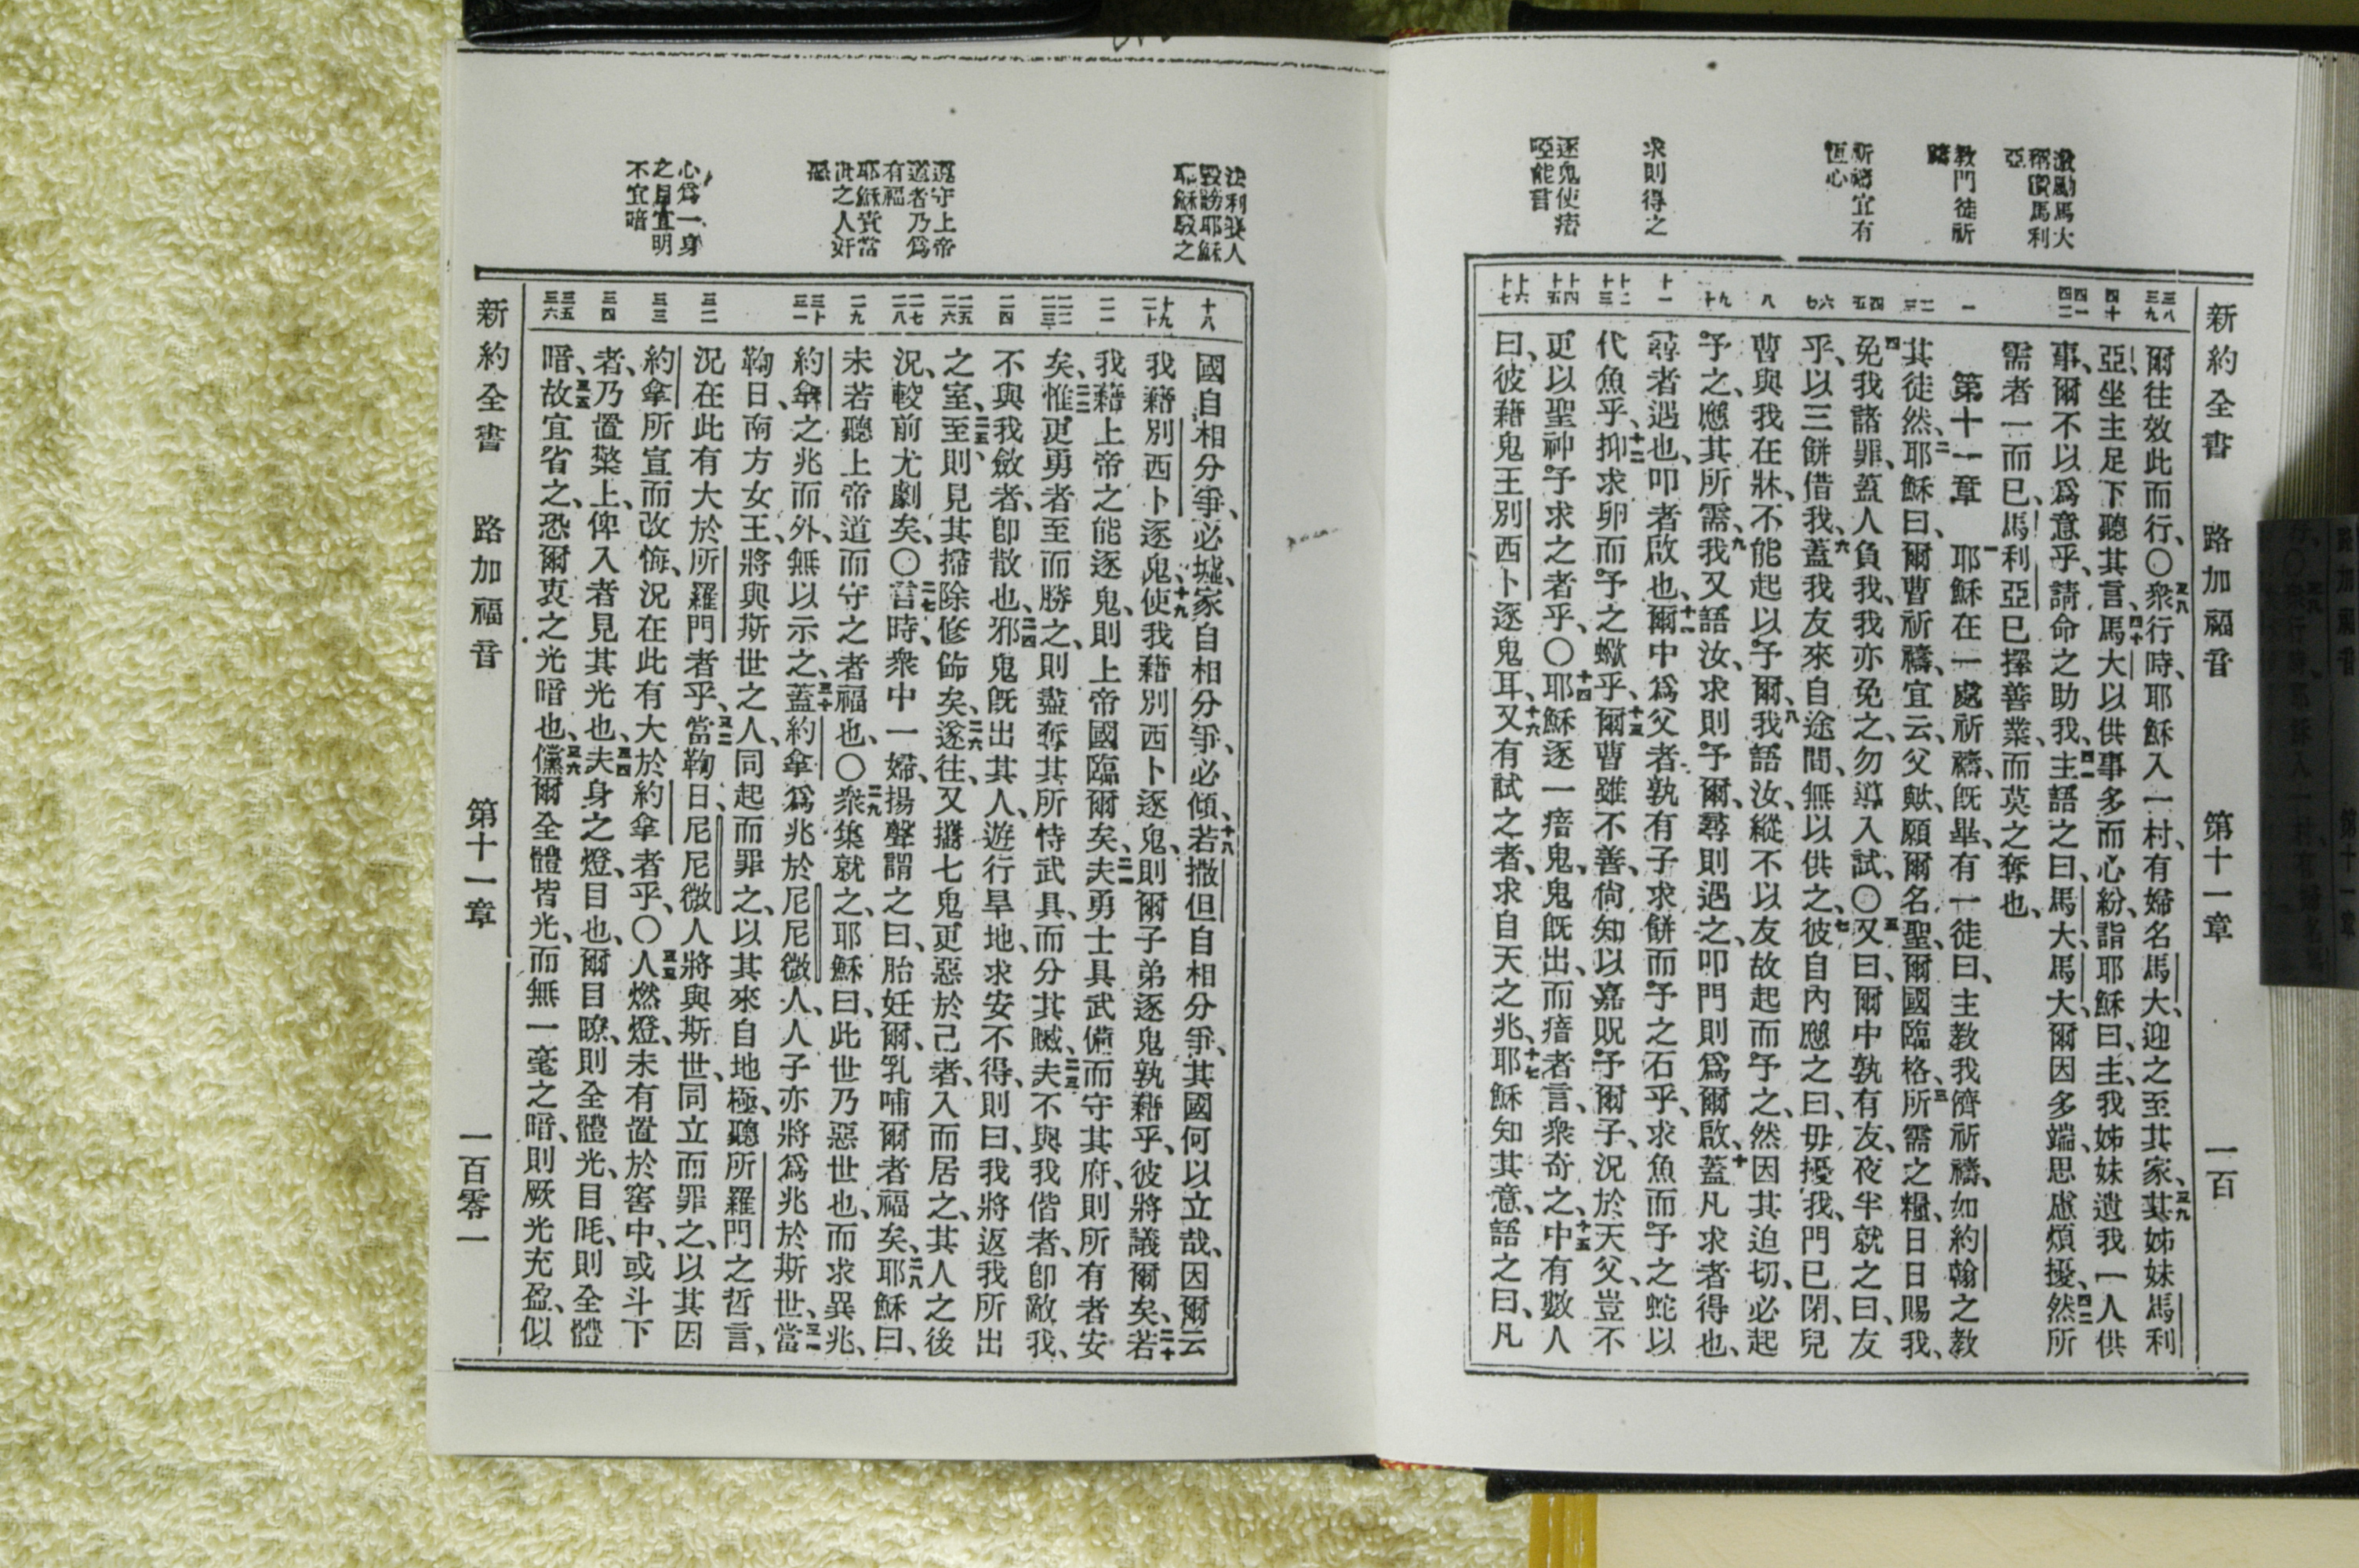 新約全書 路加福音 第十一章 一百
激勵馬大
稱讚馬利
亞
教門徒祈
禱
祈禱宜有
恒心
求則得之
逐鬼使瘖
啞能言
三八 三九
四十
四一 四二
一
二 三
四 五
六 七
八
九 十
十一
十二 十三
十四 十五
十六 十七
爾往效此而行、〇三八衆行時、耶穌入一村、有婦名馬大、迎之至其家、三九其姊妹馬利
亞、坐主足下聽其言、四十馬大以供事多而心紛、詣耶穌曰、主、我姊妹遺我一人供
事、爾不以爲意乎、請命之助我、四一主語之曰、馬大、馬大、爾因多端、思慮煩擾、四二然所
需者一而已、馬利亞已擇善業、而莫之奪也、
第十一章 一耶穌在一處祈禱、旣畢、有一徒曰、主教我儕祈禱、如約翰之教
其徒然、二耶穌曰、爾曹祈禱、宜云、父歟、願爾名聖、爾國臨格、三所需之糧、日日賜我、
四免我諸罪、蓋人負我、我亦免之、勿導入試、〇五又曰、爾中孰有友、夜半就之曰、友
乎、以三餅借我、六蓋我友來自途間、無以供之、七彼自內應之曰、毋擾我、門已閉、兒
曹與我在牀、不能起以予爾、八我語汝、縱不以友故起而予之、然因其迫切、必起
予之、應其所需、九我又語汝、求則予爾、尋則遇之、叩門則爲爾啟、十蓋凡求者得也、
尋者遇也、叩者啟也、十一爾中爲父者、孰有子求餅而予之石乎、求魚而予之蛇以
代魚乎、十二抑求卵而予之蠍乎、十三爾曹雖不善、尙知以嘉貺予爾子、況於天父、豈不
更以聖神予求之者乎、〇十四耶穌逐一瘖鬼、鬼旣出、而瘖者言、衆奇之、十五中有數人
曰、彼藉鬼王別西卜逐鬼耳、十六又有試之者、求自天之兆、十七耶穌知其意、語之曰、凡
法利賽人
毀謗耶穌
耶穌駁之
遵守上帝
道者乃爲
有福
耶穌責當
世之人奸
惡
心爲一身
之目宜明
不宜暗
十八
十九 二十
二一
二二 二三
二四
二五 二六
二七 二八
二九
三十 三一
三二
三三
三四
三五 三六
國自相分爭、必墟、家自相分爭、必傾、十八若撒但自相分爭、其國何以立哉、因爾云
我藉別西卜逐鬼、十九使我藉別西卜逐鬼、則爾子弟逐鬼孰藉乎、彼將議爾矣、二十若
我藉上帝之能逐鬼、則上帝國臨爾矣、二一夫勇士具武備而守其府、則所有者安
矣、二二惟更勇者至而勝之、則盡奪其所恃武具、而分其贓、二三夫不與我偕者、卽敵我、
不與我斂者、卽散也、二四邪鬼旣出其人、遊行旱地、求安不得、則曰、我將返我所出
之室、二五至、則見其掃除修飾矣、二六遂往、又攜七鬼更惡於己者、入而居之、其人之後
況、較前尤劇矣、〇二七言時、衆中一婦、揚聲謂之曰、胎妊爾、乳哺爾者福矣、二八耶穌曰、
未若聽上帝道而守之者福也、〇二九衆集就之、耶穌曰、此世乃惡世也、而求異兆、
約拿之兆而外、無以示之、三十蓋約拿爲兆於尼尼微人、人子亦將爲兆於斯世、三一當
鞫日、南方女王、將與斯世之人、同起而罪之、以其來自地極、聽所羅門之哲言、
況在此有大於所羅門者乎、三二當鞫日、尼尼微人將與斯世、同立而罪之、以其因
約拿所宣而改悔、況在此有大於約拿者乎、〇三三人燃燈、未有置於窖中、或斗下
者、乃置檠上、俾入者見其光也、三四夫身之燈、目也、爾目瞭、則全體光、目眊、則全體
暗、三五故宜省之、恐爾衷之光暗也、三六儻爾全體皆光、而無一毫之暗、則厥光充盈、似
新約全書 路加福音 第十一章 一百零一